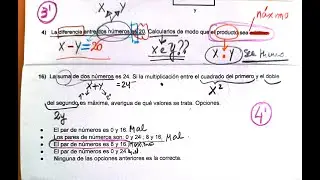 3'
x y
máximo
4) La diferencia entre dos números es 20. Calcularlos de modo que el producto sea
x-y=20
x e y??
x · y
sea mínimo
16) La suma de dos números es 24. Si la multiplicación entre el cuadrado del primero y el doble
x+y=24
x²
del segundo es máxima, averigua de qué valores se trata. Opciones.
2y
4'
• El par de números es 0 y 16. Mal
• Los pares de números son: 0 y 24 ; 8 y 16. Mal.
• El par de números es 8 y 16. Máximo
• El par de números es 0 y 24. Mal
• Ninguna de las opciones anteriores es la correcta.